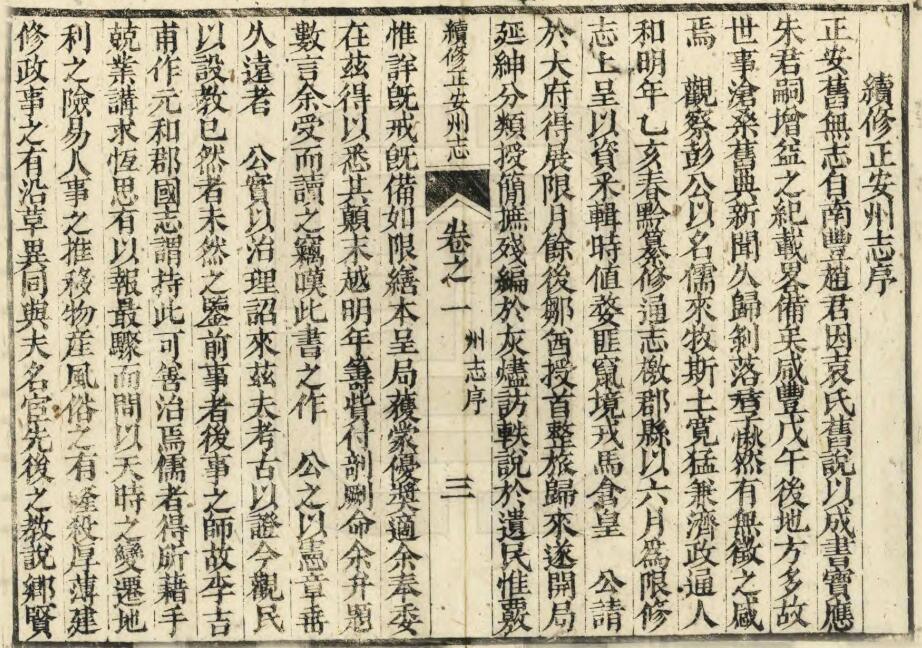 續修正安州志序
正安舊無志自南豐趙君因袁氏舊說以成書寶應
朱君嗣增益之紀載畧備矣咸豐戊午後地方多故
世事滄桑舊典新聞久歸剝落君子愀然有無徵之感
焉　觀察彭公以名儒來牧斯土寬猛兼濟政通人
和明年乙亥春黔纂修通志檄郡縣以六月為限修
志上呈以資采輯時值婺匪竄境戎馬倉皇　公請
於大府得展限月餘後鄒酋授首整旅歸來遂開局
延紳分類授簡摭殘編於灰燼訪軼說於遺民惟覈
續修正安州志
卷之一
州志序
三
惟詳旣戒旣備如限繕本呈局獲蒙優奬適余奉委
在茲得以悉其顛末越明年籌貲付剞劂命余弁題
數言余受而讀之竊嘆此書之作　公之以憲章垂
久遠者　公實以治理詔來茲夫考古以證今觀民
以設教已然者未然之鑒前事者後事之師故李吉
甫作元和郡國志謂持此可善治焉儒者得所藉手
兢業講求恆思有以報最驟而問以天時之變遷地
利之險易人事之推移物產風俗之有隆殺厚薄建
修政事之有沿革異同與夫名宦先後之教說鄉賢